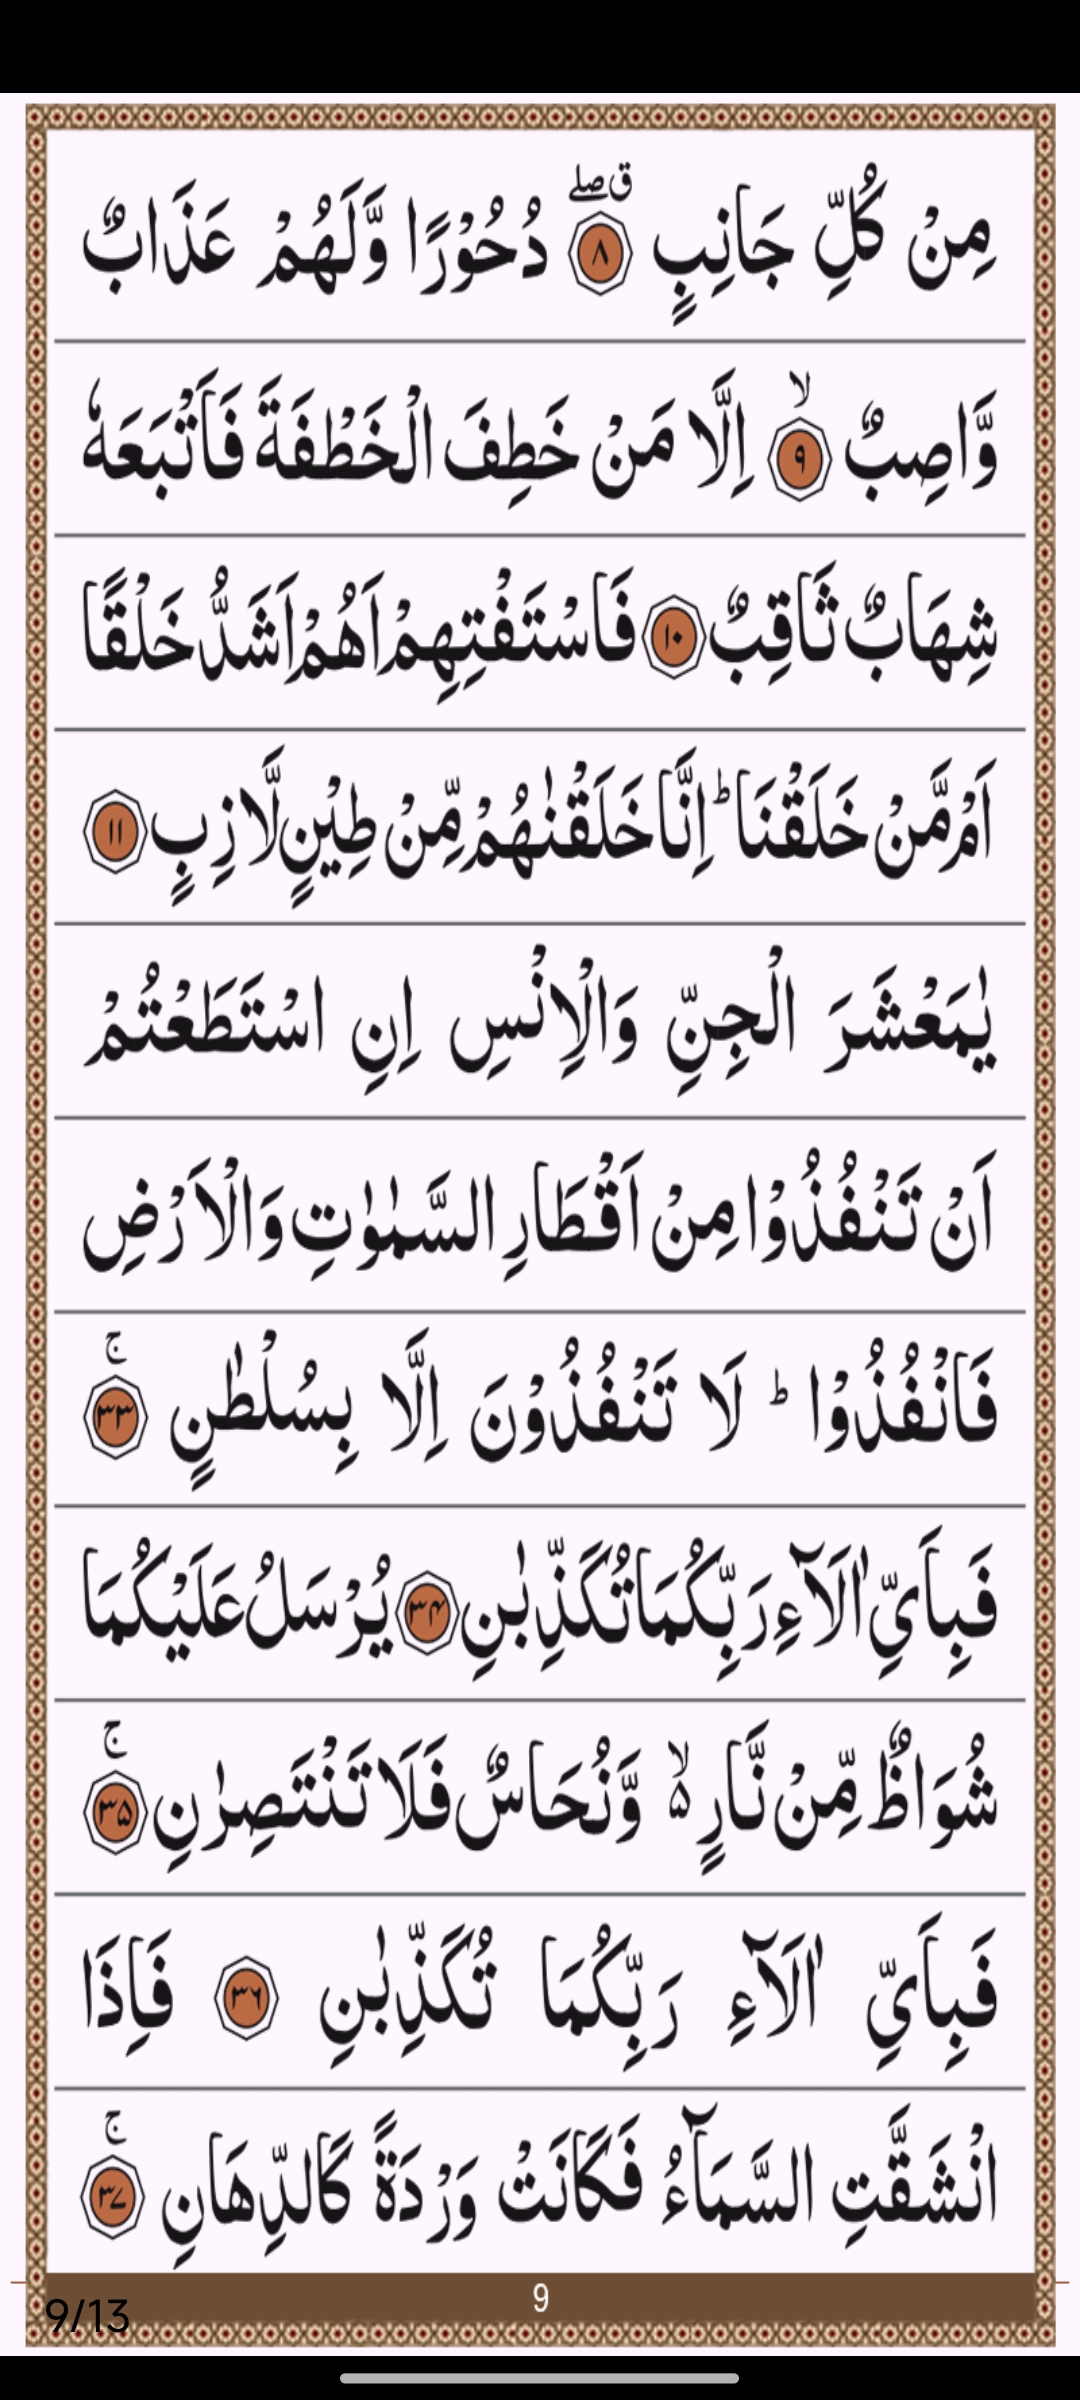 مِنْ كُلِّ جَانِبٍ ۝٨ ق صلے دُحُوْرًا وَّلَهُمْ عَذَابٌ
وَّاصِبٌ ۝٩ ۙ اِلَّا مَنْ خَطِفَ الْخَطْفَةَ فَاَتْبَعَهٗ
شِهَابٌ ثَاقِبٌ ۝١٠ فَاسْتَفْتِهِمْ اَهُمْ اَشَدُّ خَلْقًا
اَمْ مَّنْ خَلَقْنَا ؕ اِنَّا خَلَقْنٰهُمْ مِّنْ طِيْنٍ لَّازِبٍ ۝١١
يٰمَعْشَرَ الْجِنِّ وَالْاِنْسِ اِنِ اسْتَطَعْتُمْ
اَنْ تَنْفُذُوْا مِنْ اَقْطَارِ السَّمٰوٰتِ وَالْاَرْضِ
فَانْفُذُوْا ؕ لَا تَنْفُذُوْنَ اِلَّا بِسُلْطٰنٍ ۝٣٣ ۚ
فَبِاَيِّ اٰلَآءِ رَبِّكُمَا تُكَذِّبٰنِ ۝٣۴ يُرْسَلُ عَلَيْكُمَا
شُوَاظٌ مِّنْ نَّارٍ ۙ۵ وَّنُحَاسٌ فَلَا تَنْتَصِرٰنِ ۝٣۵ ۚ
فَبِاَيِّ اٰلَآءِ رَبِّكُمَا تُكَذِّبٰنِ ۝٣٦ فَاِذَا
انْشَقَّتِ السَّمَآءُ فَكَانَتْ وَرْدَةً كَالدِّهَانِ ۝٣٧ ۚ
9
9/13